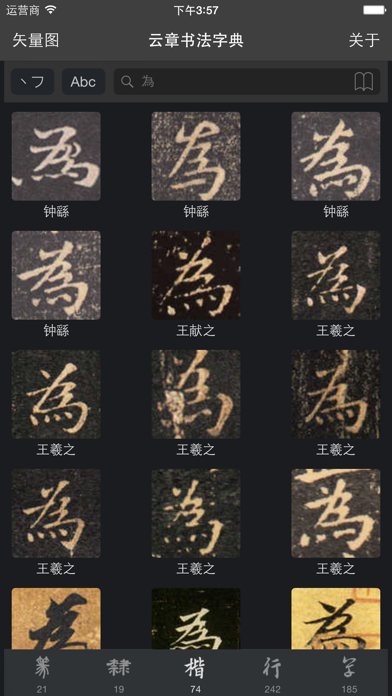 运营商 下午3:57
矢量图 云章书法字典 关于
丶フ Abc 為
為 為 為
钟繇 钟繇 钟繇
為 為 為
钟繇 王献之 王羲之
為 為 為
王羲之 王羲之 王羲之
為 為 為
王羲之 王羲之 王羲之
為 為 為
篆 隸 楷 行 草
21 19 74 242 185